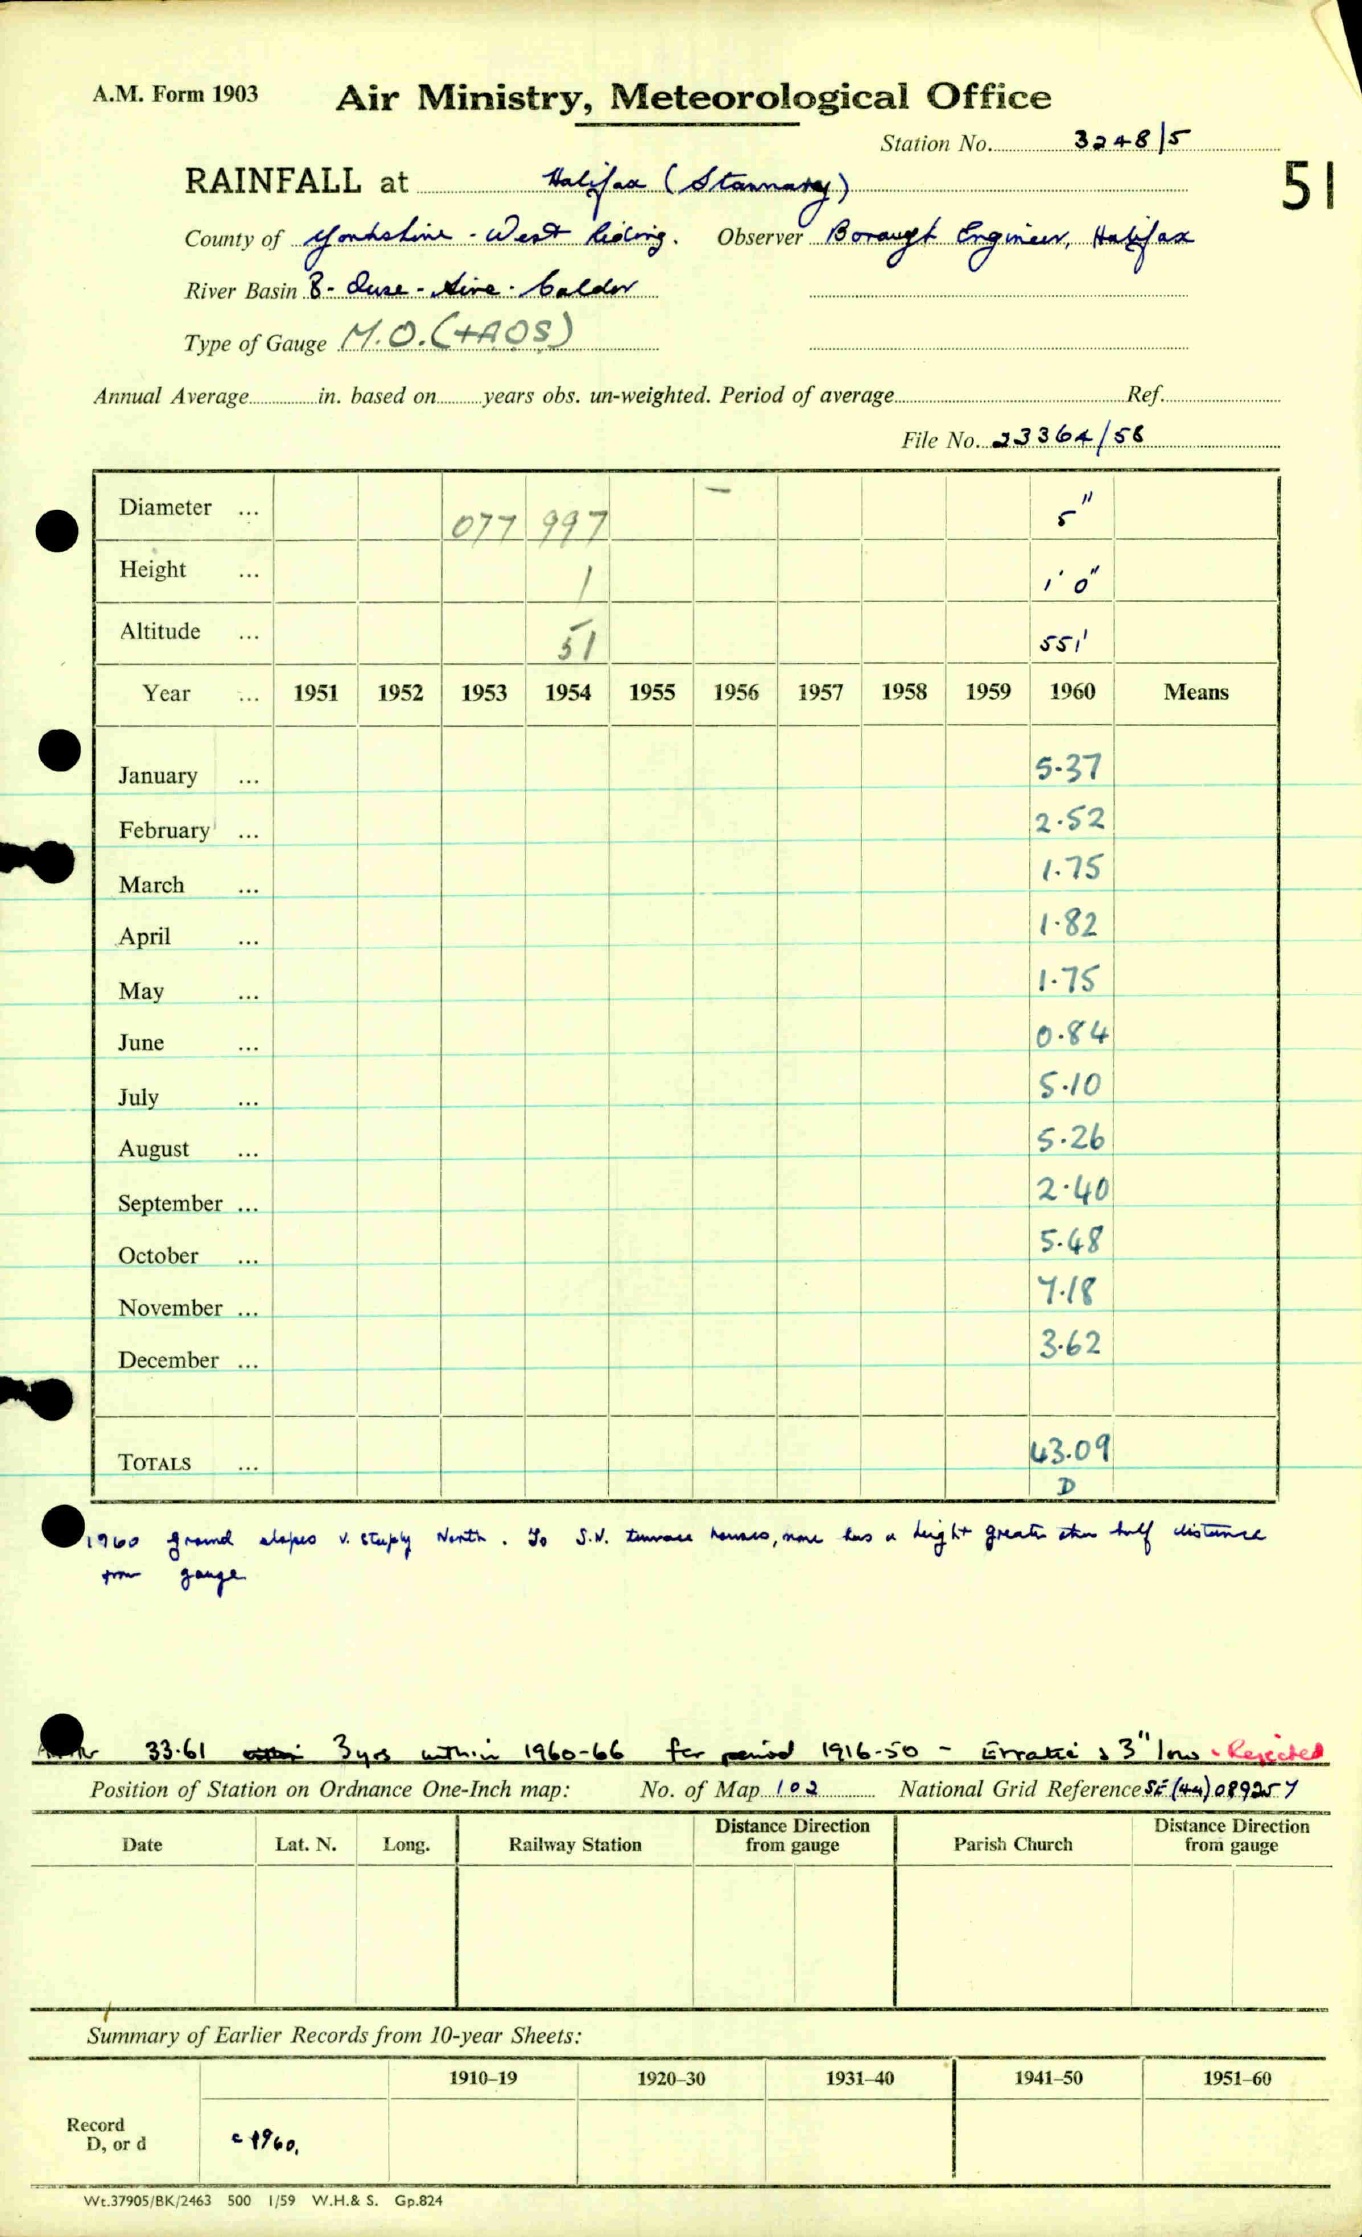 A.M. Form 1903 Air Ministry, Meteorological Office
Station No. 3248/5
RAINFALL at Halifax (Stannary)
51
County of Yorkshire - West Riding. Observer Borough Engineer, Halifax
River Basin 8 - Ouse - Aire - Calder
Type of Gauge M.O. (+AOS)
Annual Average in. based on years obs. un-weighted. Period of average Ref.
File No. 23364/58
Diameter ... 077 997 – 5"
Height ... 1 1' 0"
Altitude ... 51 551'
Year ... 1951 1952 1953 1954 1955 1956 1957 1958 1959 1960 Means
January ... 5.37
February ... 2.52
March ... 1.75
April ... 1.82
May ... 1.75
June ... 0.84
July ... 5.10
August ... 5.26
September ... 2.40
October ... 5.48
November ... 7.18
December ... 3.62
TOTALS ... 43.09
D
1960 ground slopes v. steeply North. To S.W. terrace houses, none has a height greater than half distance
from gauge
33.61 3 yrs within 1960-66 for period 1916-50 - Erratic & 3" low - Rejected
Position of Station on Ordnance One-Inch map: No. of Map 102 National Grid Reference SE (44) 089257
Date Lat. N. Long. Railway Station Distance Direction from gauge Parish Church Distance Direction from gauge
Summary of Earlier Records from 10-year Sheets:
1910–19 1920–30 1931–40 1941–50 1951–60
Record
D, or d c 1960.
Wt.37905/BK/2463 500 1/59 W.H.& S. Gp.824